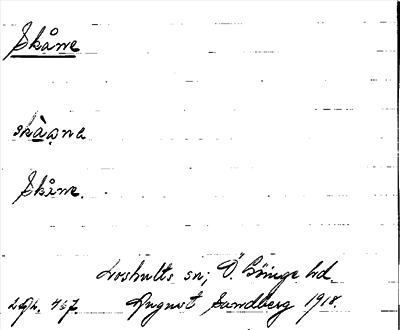 Skåne
skåana
Skåne.
Loshults sn; Ö. Göinge hd.
August Sandberg 1918